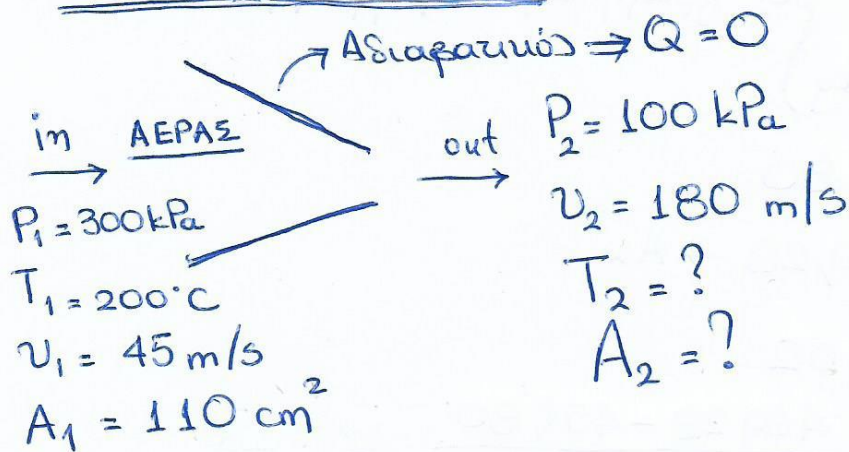 Αδιαβατικός ⇒ Q = 0
in ΑΕΡΑΣ
out
P₁ = 300 kPa
T₁ = 200°C
υ₁ = 45 m/s
A₁ = 110 cm²
P₂ = 100 kPa
υ₂ = 180 m/s
T₂ = ?
A₂ = ?